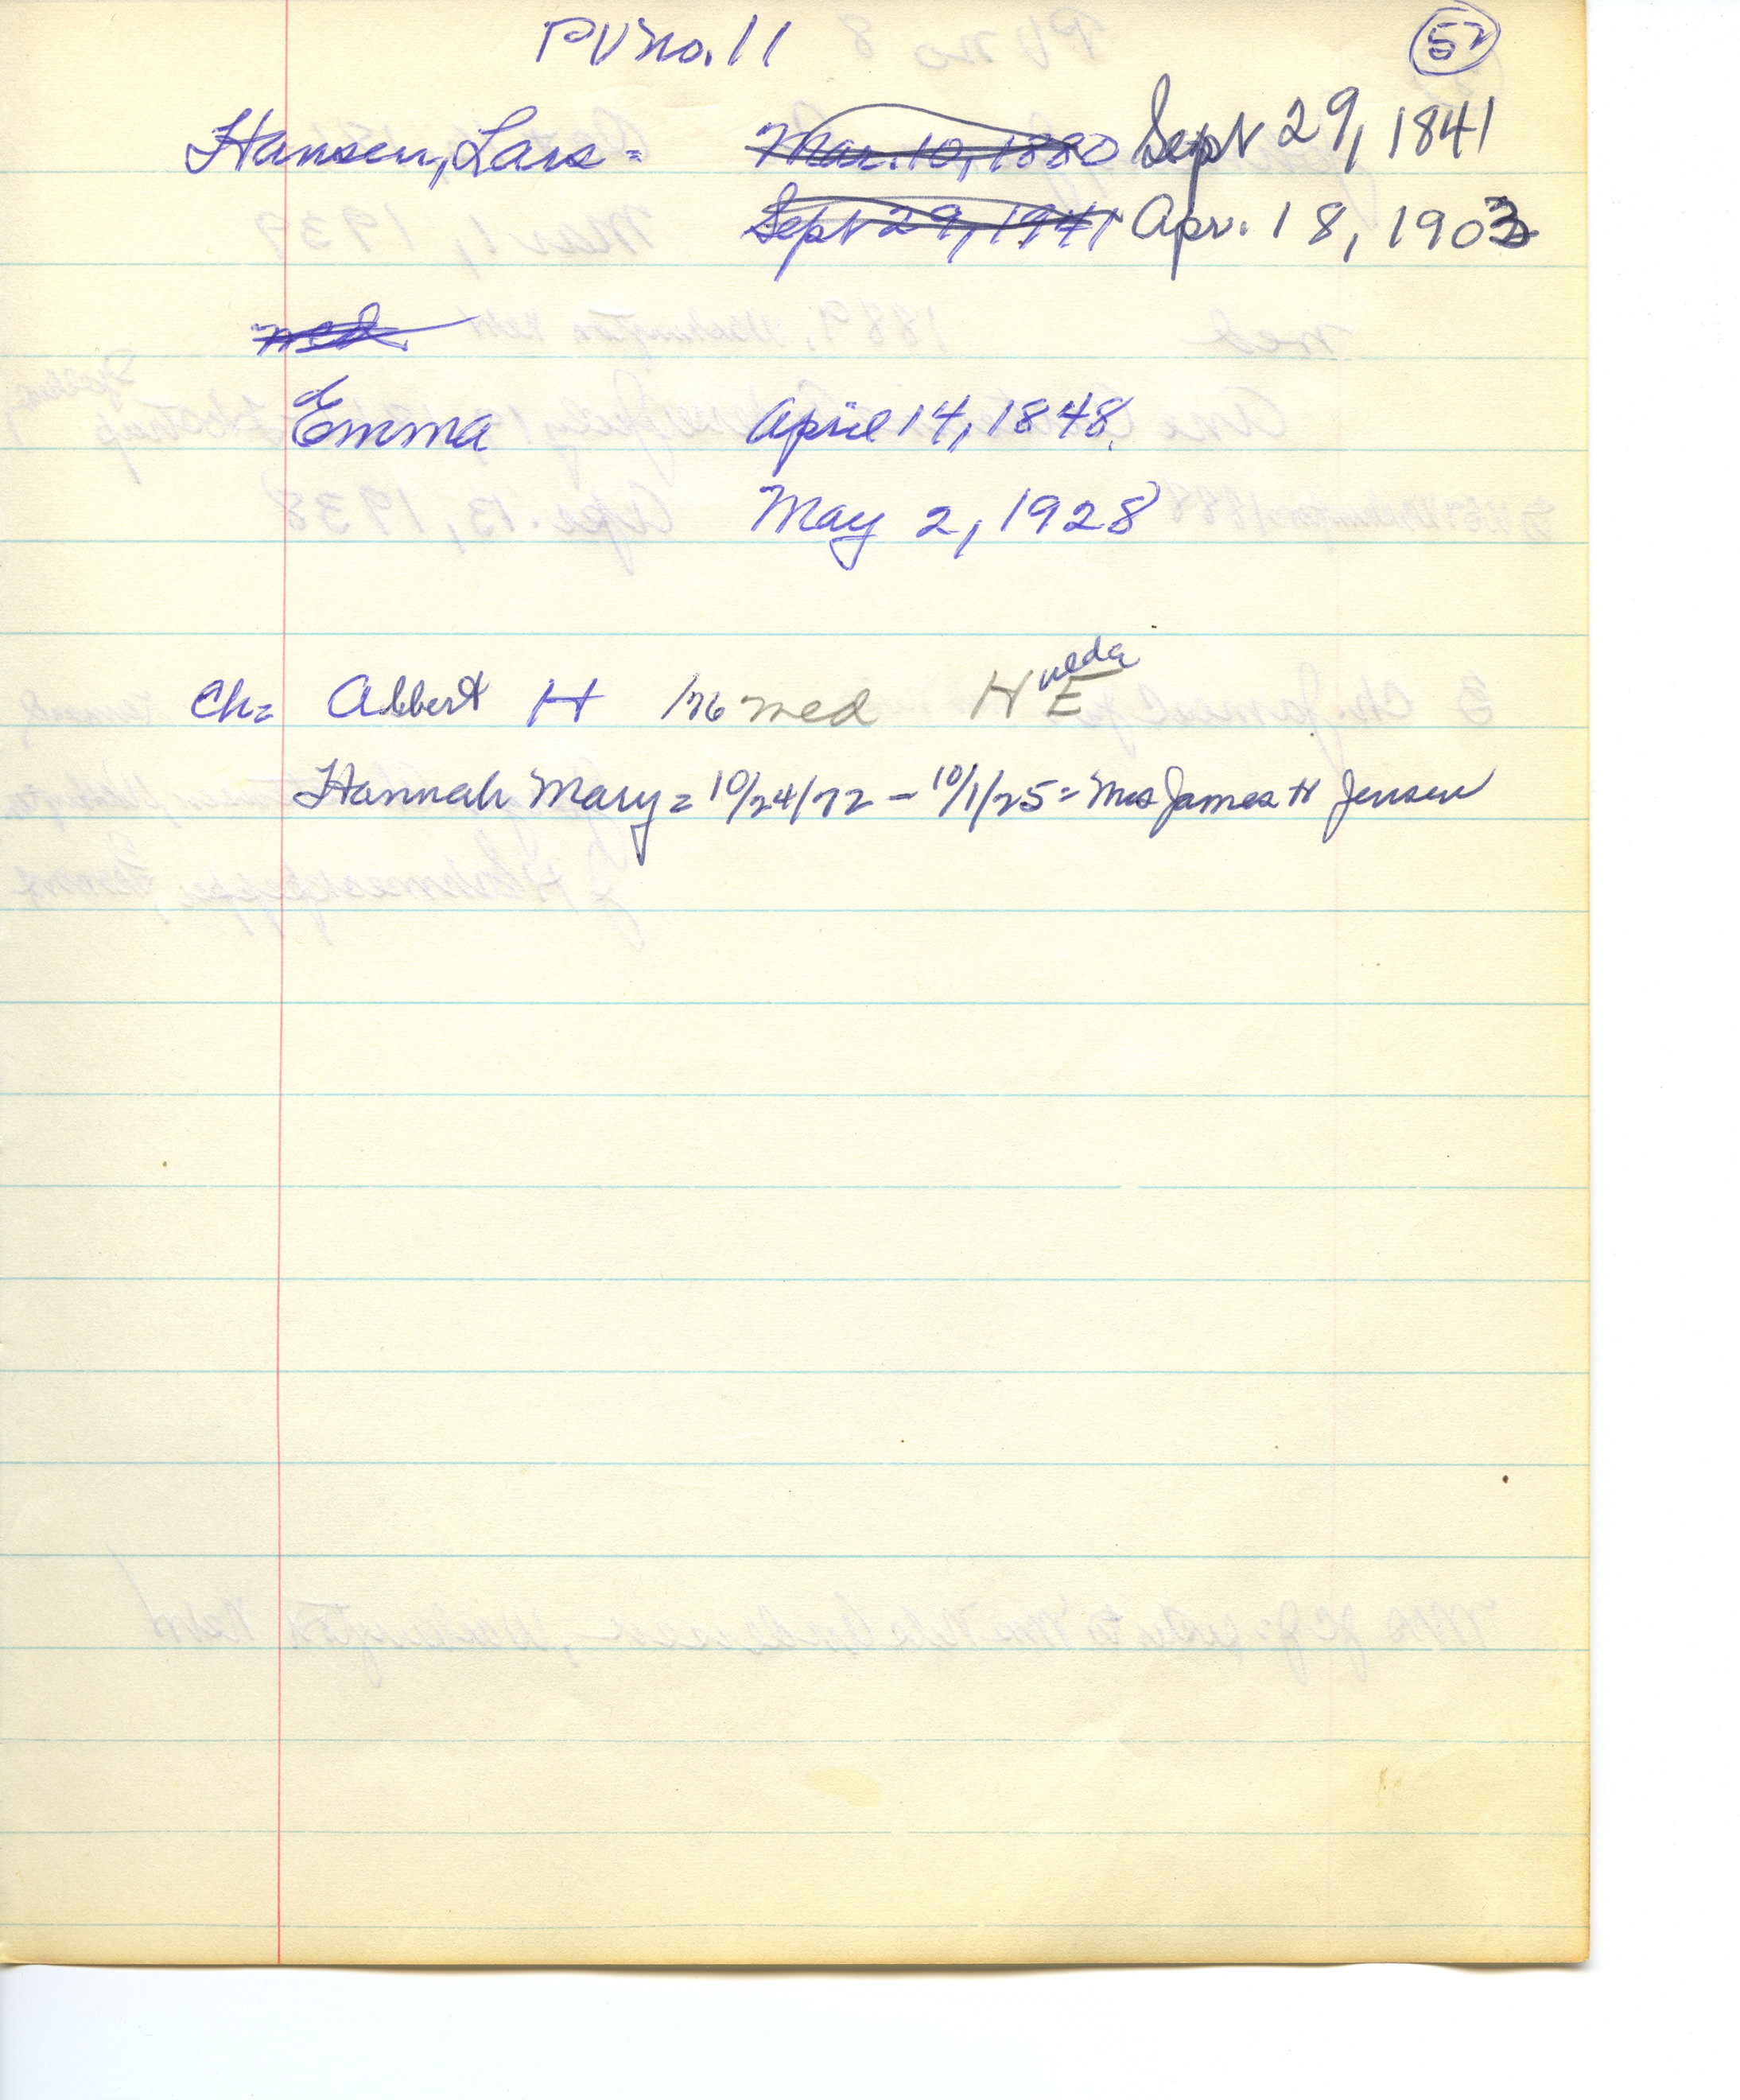 PV no. 11 52
Hansen, Lars = Mar. 10, 1880 Sept 29, 1841
Sept 29, 1941 Apr. 18, 1903
med.
Emma April 14, 1848
May 2, 1928
Ch= Albert H 1/76 med H ulda E
Hannah Mary = 10/24/72 - 10/1/25 = Mrs James H Jensen